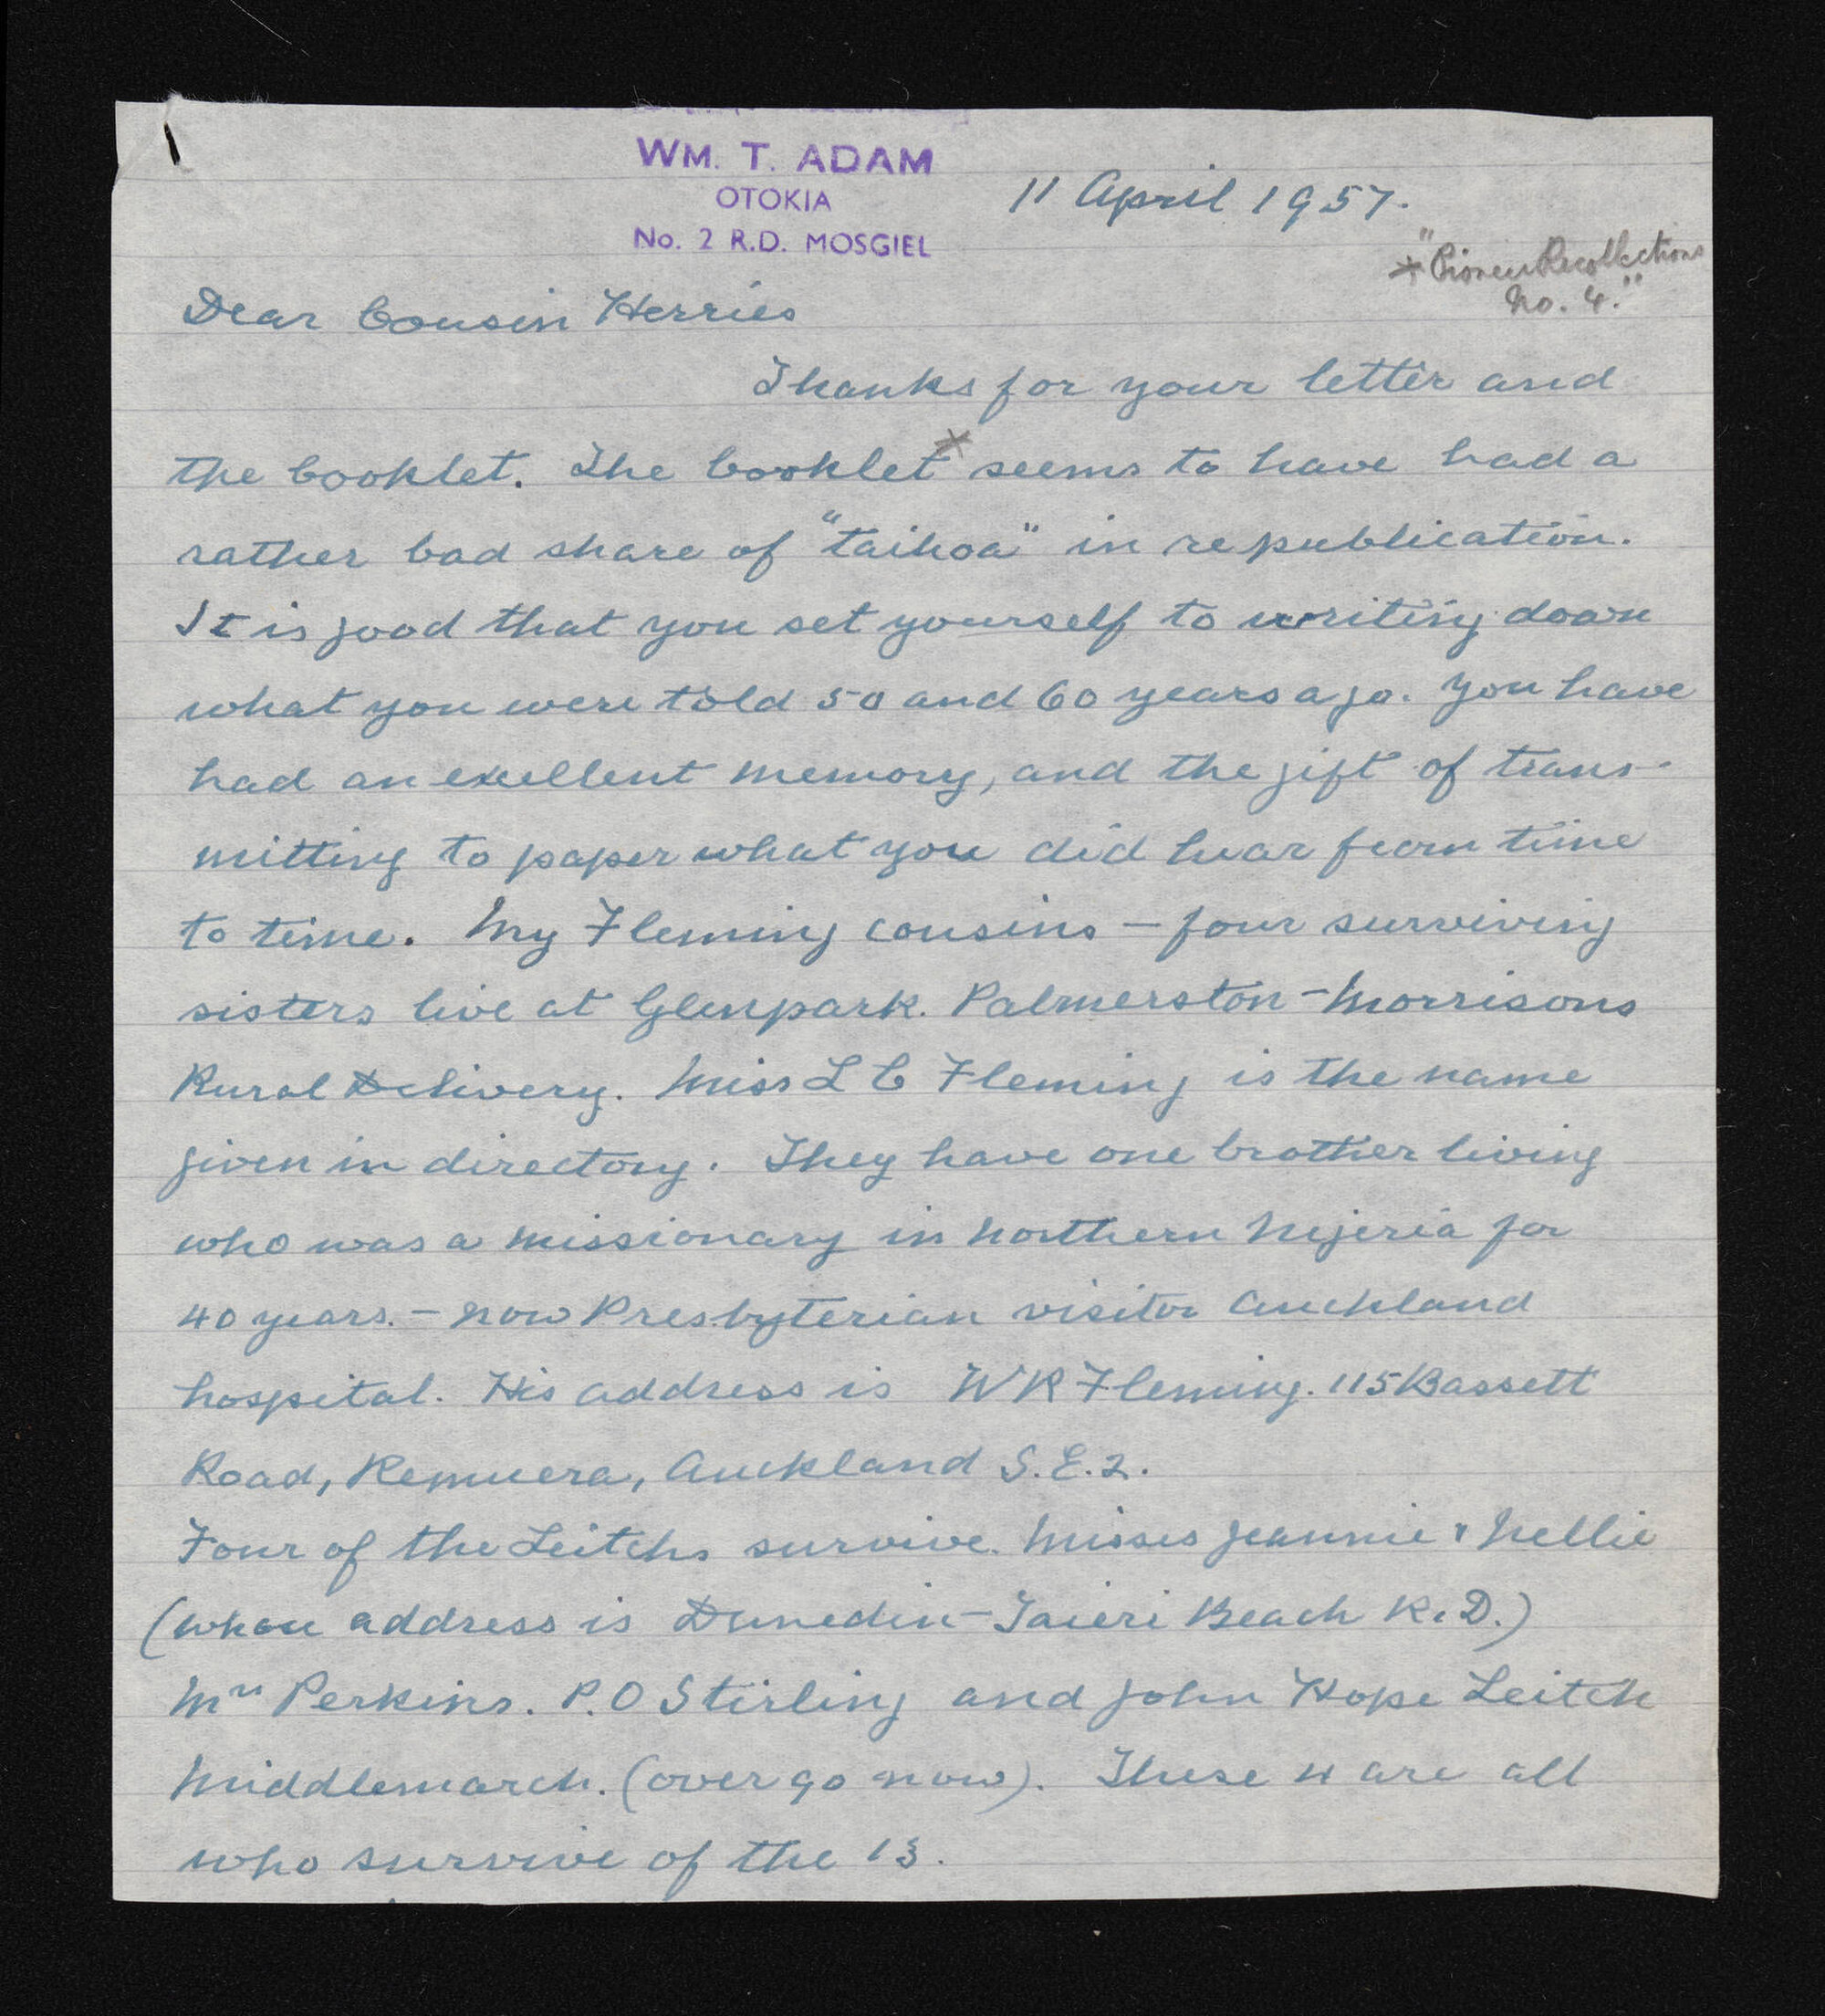 WM. T. ADAM
OTOKIA
No. 2 R.D. MOSGIEL
11 April 1957.
* "Pioneer Recollections
No. 4."
Dear Cousin Herries
Thanks for your letter and
the booklet. The booklet* seems to have had a
rather bad share of "taihoa" in republication.
It is good that you set yourself to writing down
what you were told 50 and 60 years ago. You have
had an exellent memory, and the gift of trans-
mitting to paper what you did hear from time
to time. My Fleming cousins – four surviving
sisters live at Glenpark. Palmerston – Morrisons
Rural Delivery. Miss L C Fleming is the name
given in directory. They have one brother living
who was a missionary in Northern Nigeria for
40 years. – now Presbyterian visitor Auckland
hospital. His address is W R Fleming. 115 Bassett
Road, Remuera, Auckland S.E.2.
Four of the Leitchs survive. Misses Jeannie & Nellie
(whose address is Dunedin – Taieri Beach R.D.)
Mrs Perkins. P.O Stirling and John Hope Leitch
Middlemarch. (over 90 now). These 4 are all
who survive of the 13.